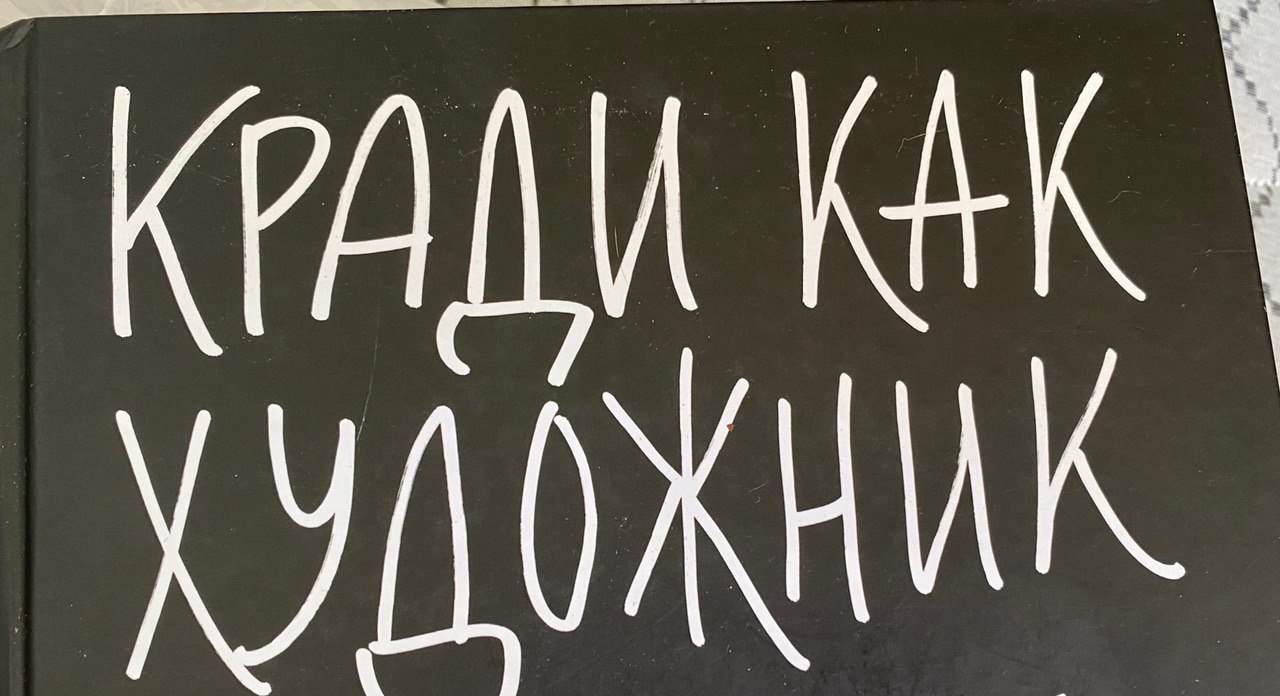 КРАДИ КАК
ХУДОЖНИК